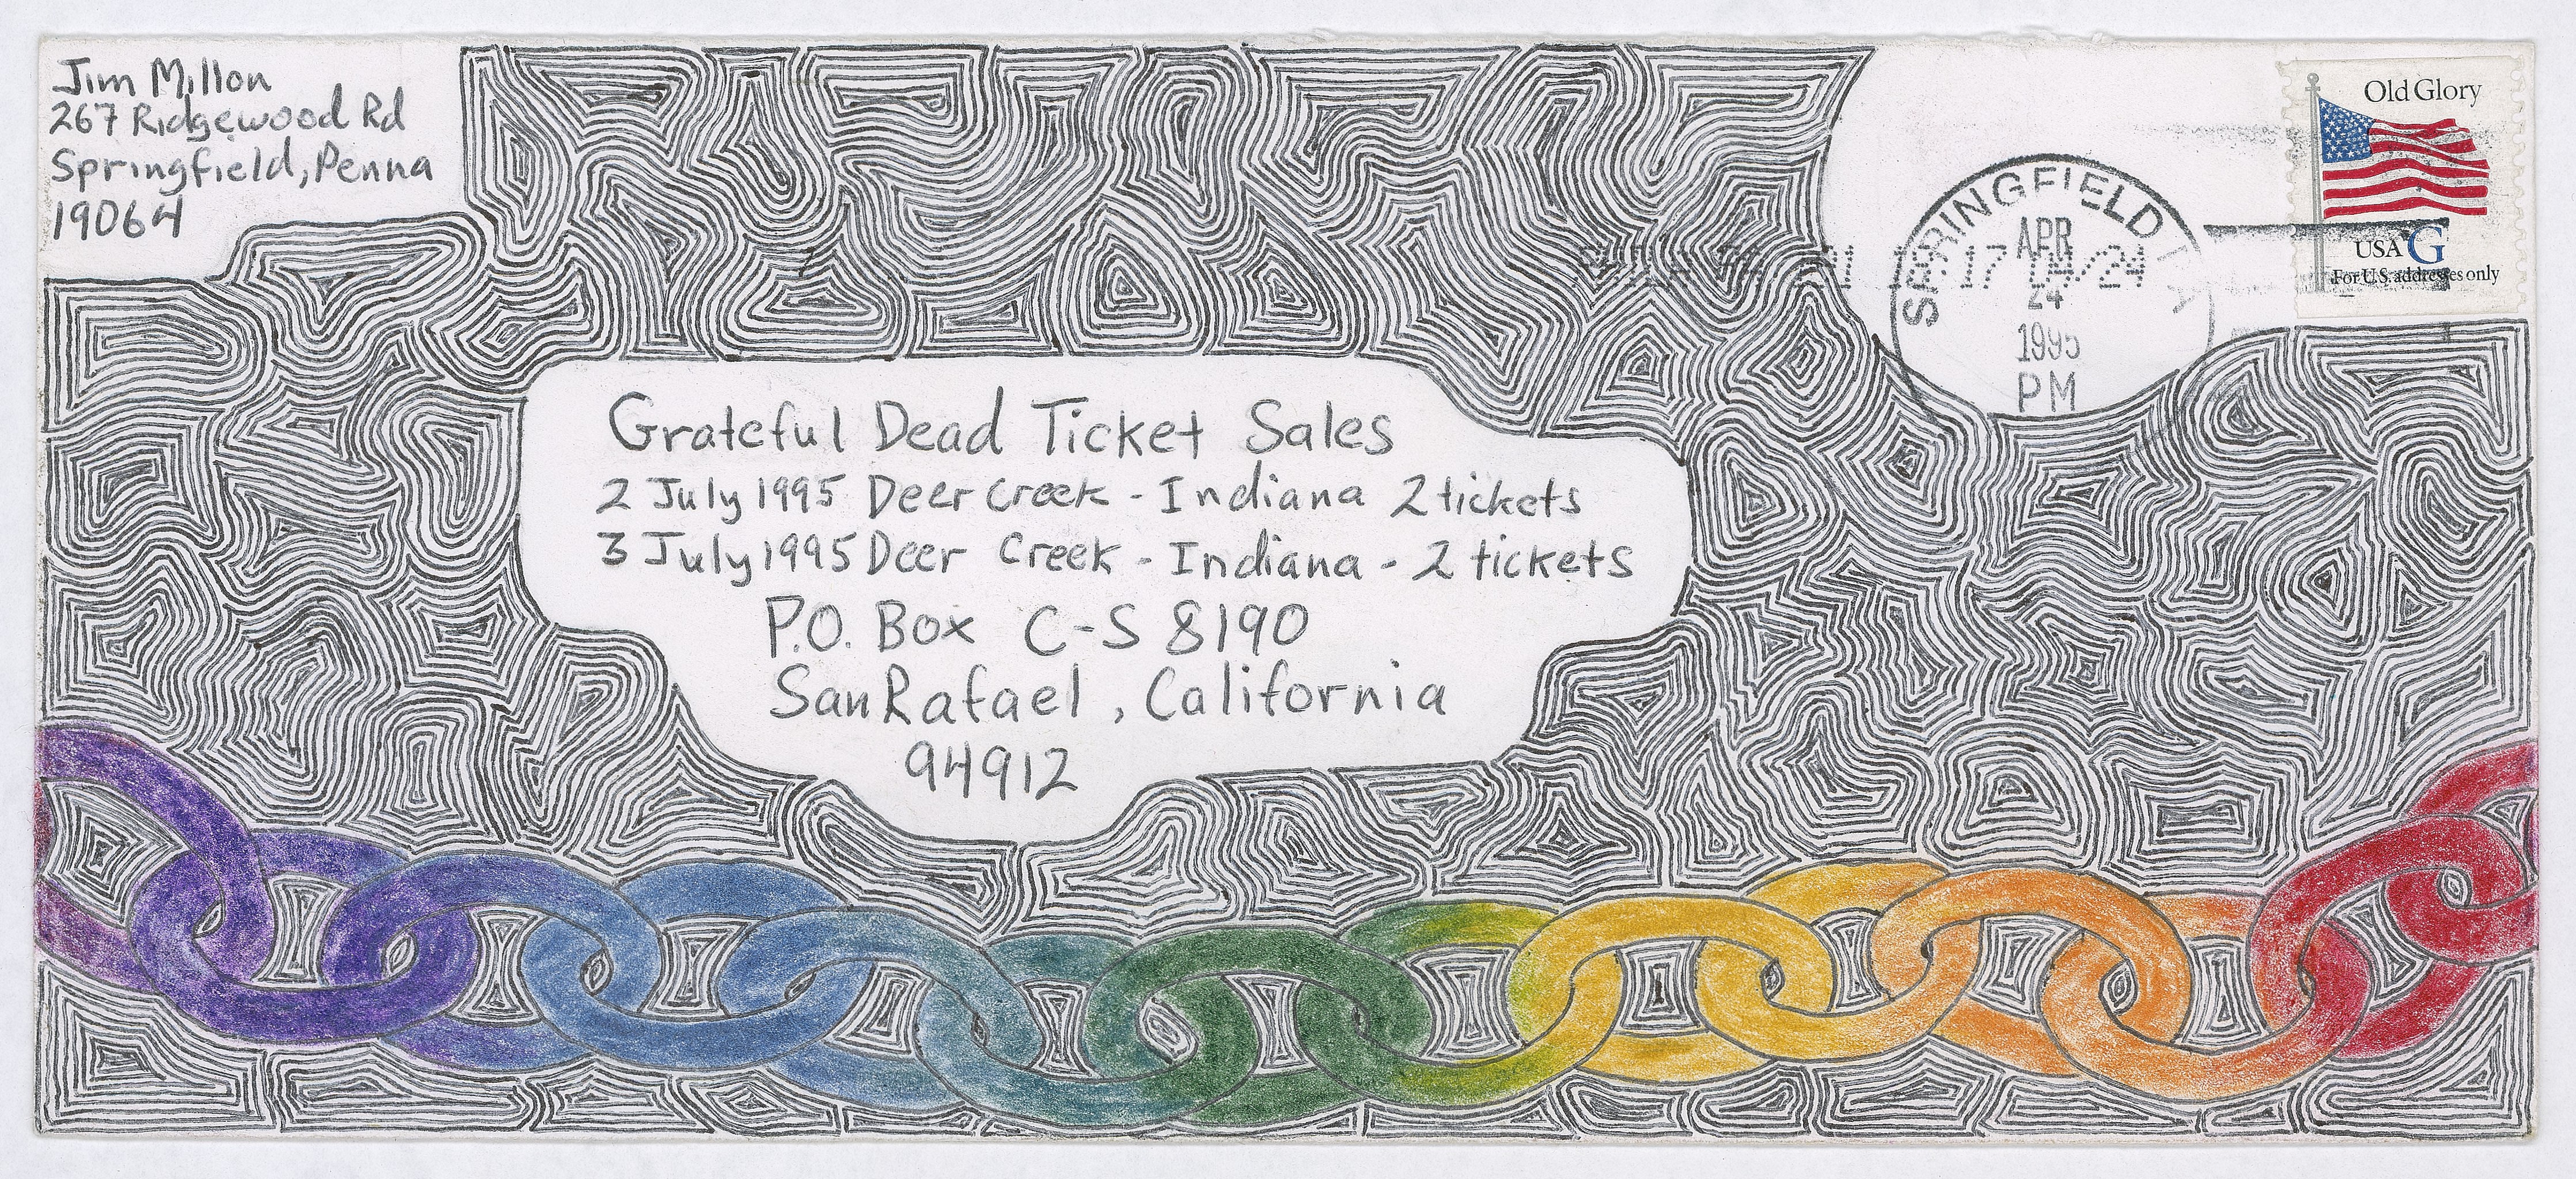 Jim Millon
267 Ridgewood Rd
Springfield, Penna
19064
Old Glory
USA G
For U.S. addresses only
SPRINGFIELD
APR
24
1995
PM
17 04/24
Grateful Dead Ticket Sales
2 July 1995 Deer Creek - Indiana 2 tickets
3 July 1995 Deer Creek - Indiana - 2 tickets
P.O. Box C-S 8190
San Rafael, California
94912